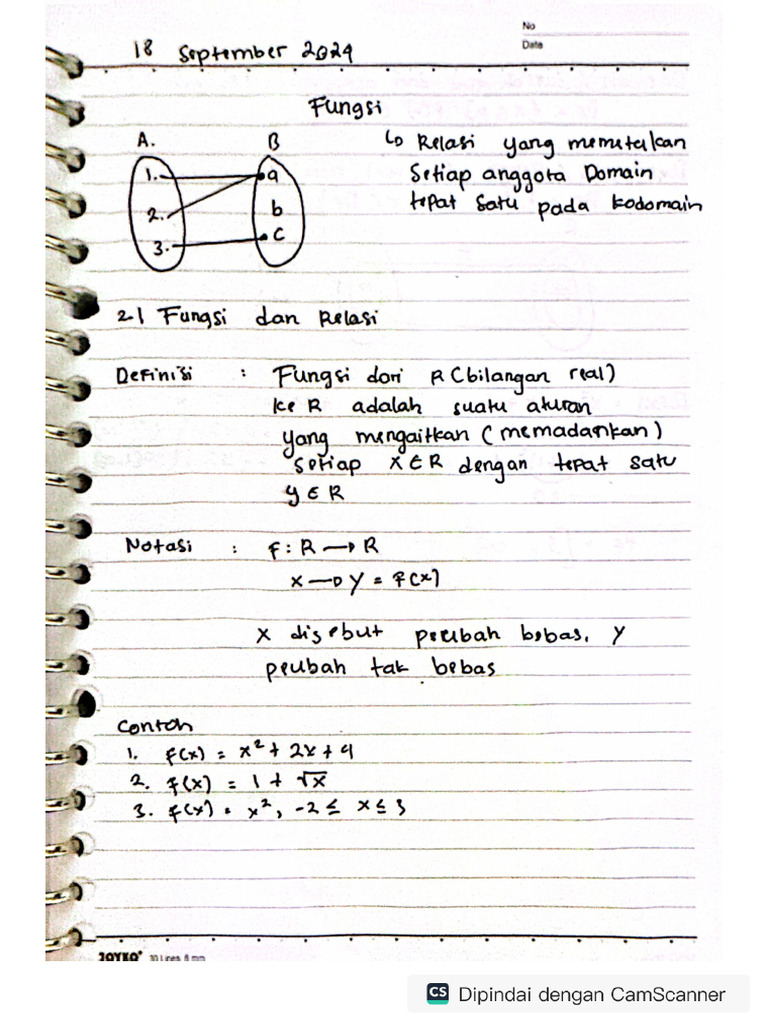 No
18 September 2024
Date
Fungsi
A. B
↳ Relasi yang memetakan
1. a
Setiap anggota Domain
2. b
tepat satu pada kodomain
3. c
2.1 Fungsi dan Relasi
Definisi : Fungsi dari R (bilangan real)
ke R adalah suatu aturan
yang mengaitkan (memadankan)
setiap x ∈ R dengan tepat satu
y ∈ R
Notasi : f : R → R
x → y = f(x)
x disebut peubah bebas, y
peubah tak bebas
Contoh
1. f(x) = x² + 2x + 4
2. f(x) = 1 + √x
3. f(x) = x², -2 ≤ x ≤ 3
JOYKO 30 Lines, 8 mm
CS Dipindai dengan CamScanner